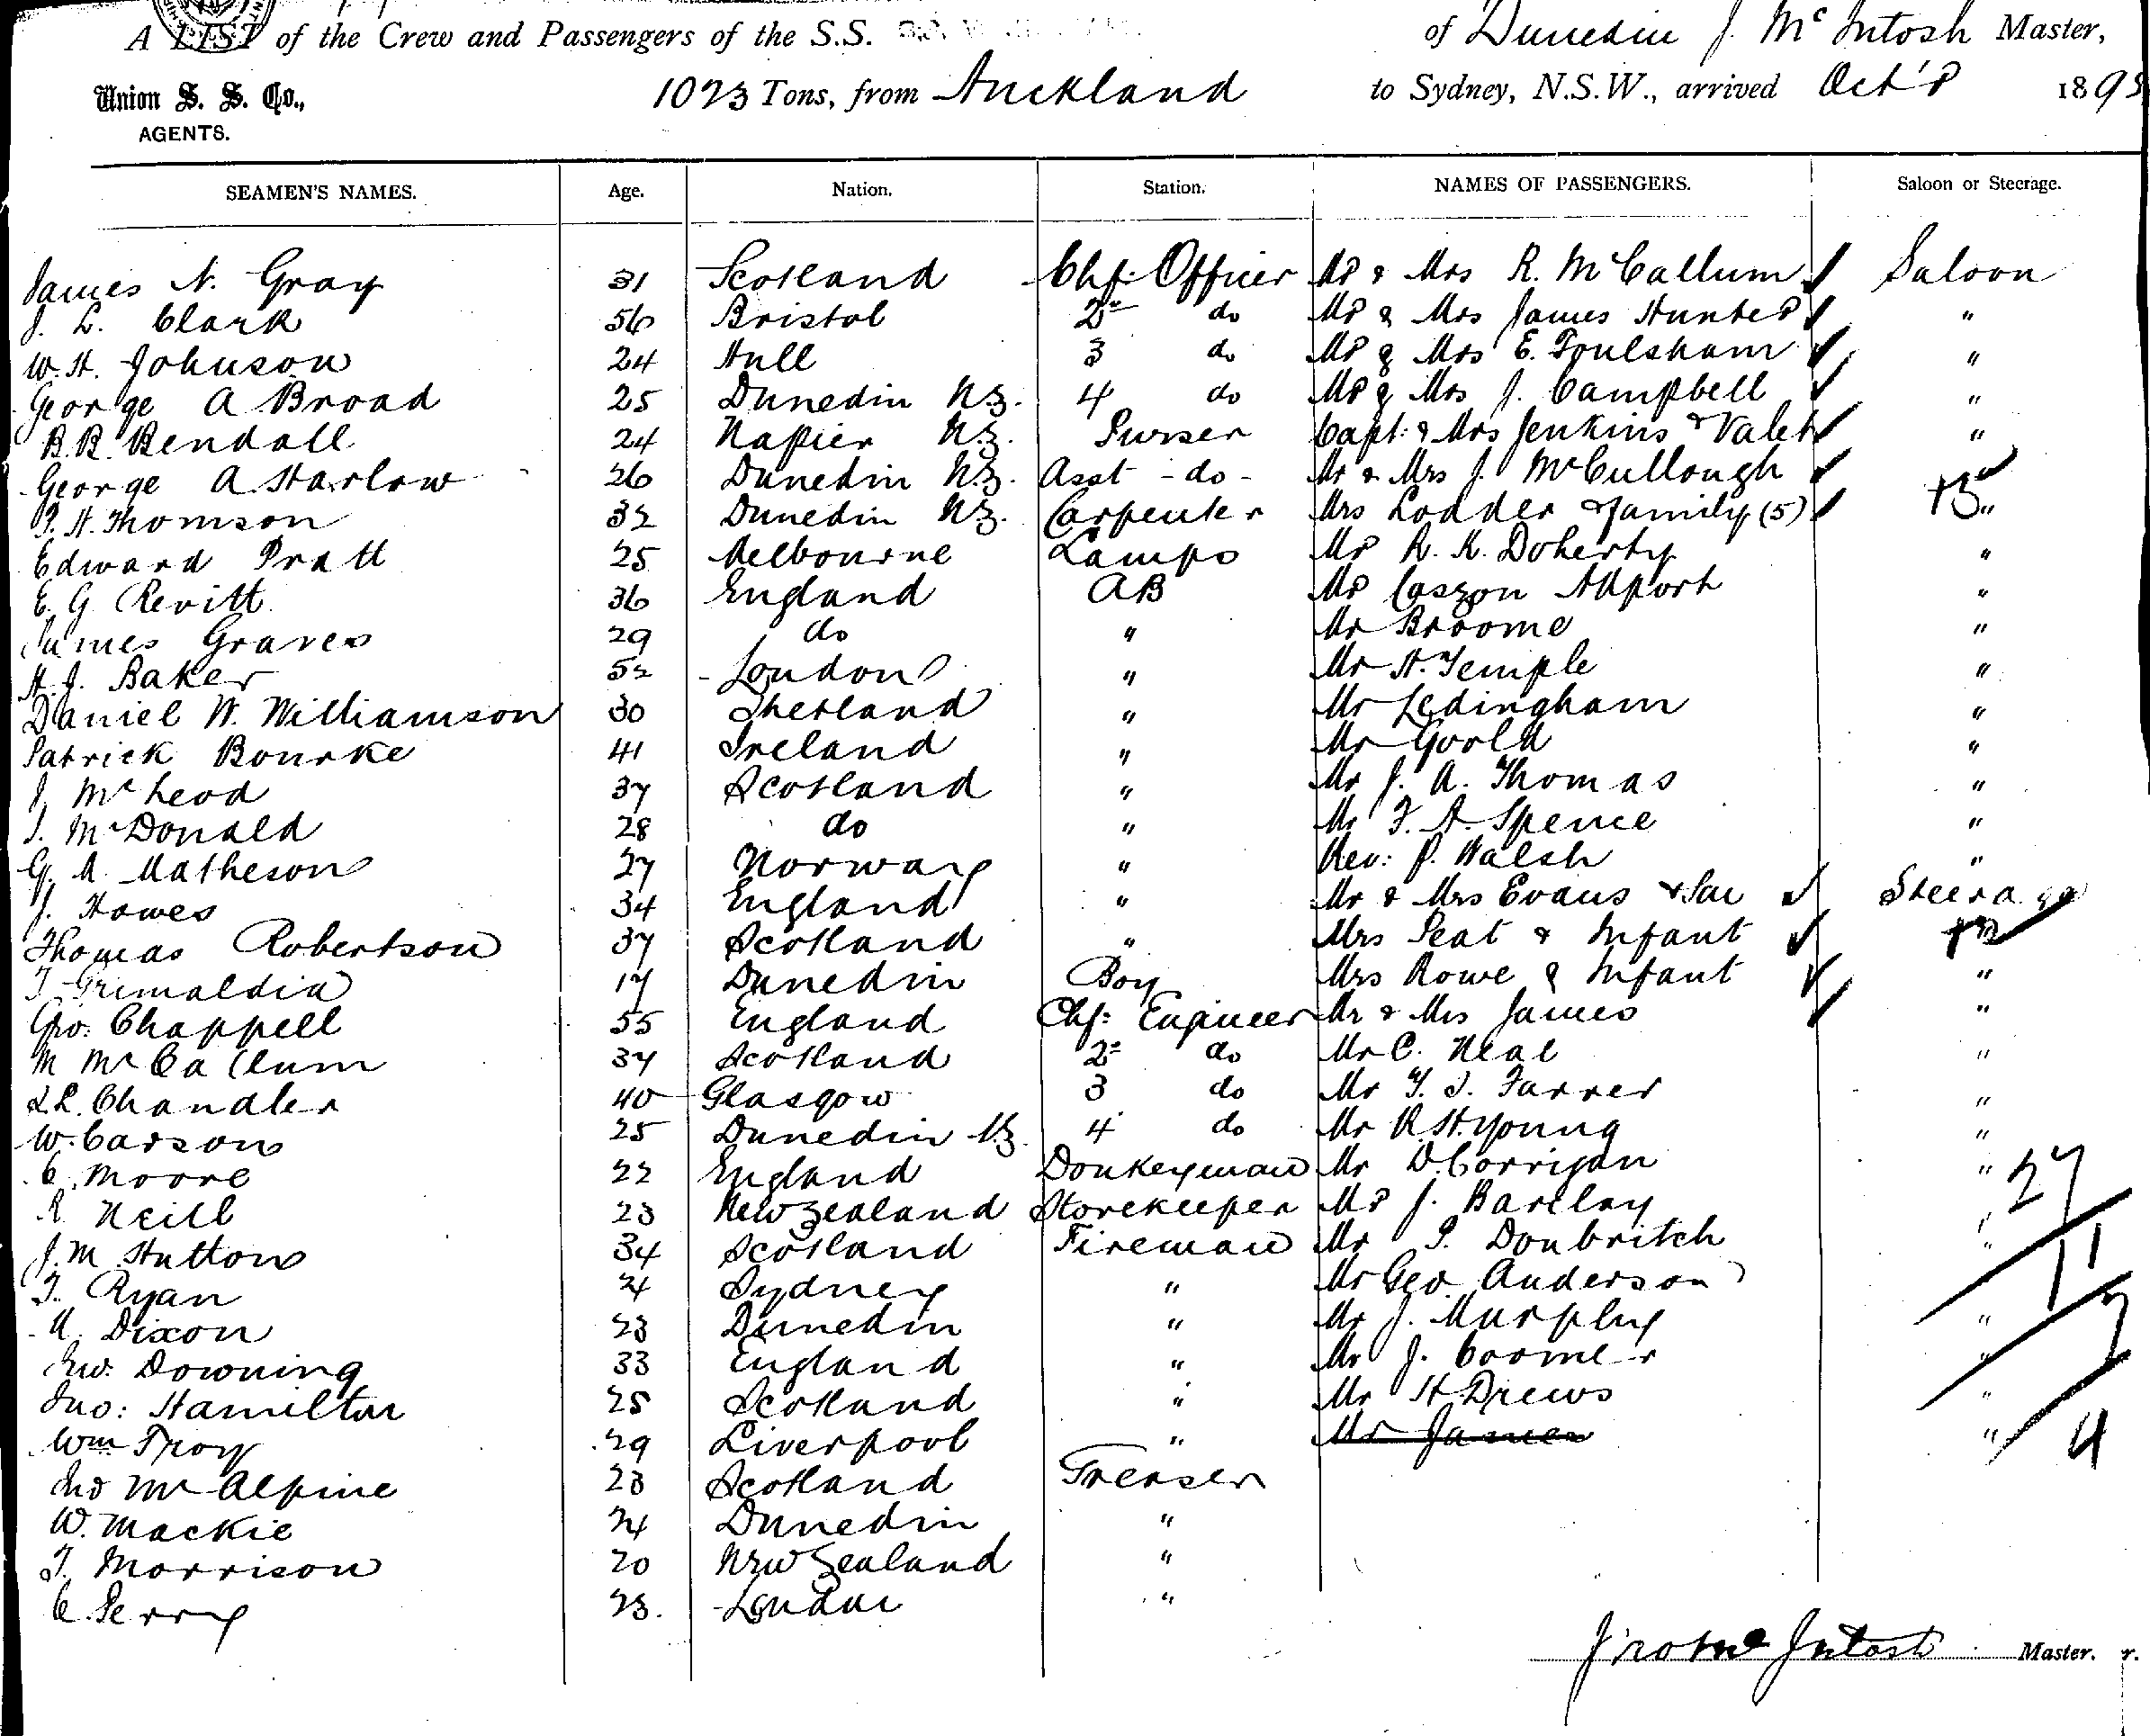 A LIST of the Crew and Passengers of the S.S. of Dunedin J. McIntosh Master,
Union S. S. Co., 1023 Tons, from Auckland to Sydney, N.S.W., arrived Oct' 8 189
AGENTS.
SEAMEN'S NAMES. Age. Nation. Station. NAMES OF PASSENGERS. Saloon or Steerage.
James N. Gray 31 Scotland Chf: Officer Mr & Mrs R. McCallum Saloon
J. L. Clark 56 Bristol 2nd do Mr & Mrs James Hunter "
W. H. Johnson 24 Hull 3 do Mr & Mrs E. Foulsham "
George A Broad 25 Dunedin N.Z. 4 do Mr & Mrs J. Campbell "
B.B. Bendall 24 Napier N.Z. Purser Capt: & Mrs Jenkins & Valet "
George A. Harlow 26 Dunedin N.Z. Asst - do - Mr & Mrs J. McCullough "
H. Thomson 32 Dunedin N.Z. Carpenter Mrs Lodder & family (5) "
Edward Pratt 25 Melbourne Lamps Mr R. K. Doherty "
E. G. Revitt 36 England AB Mr Allport "
James Graves 29 do " Mr Broome "
H. J. Baker 52 London " Mr H. Temple "
Daniel W. Williamson 30 Shetland " Mr Ledingham "
Patrick Bourke 41 Ireland " Mr Goold "
J. McLeod 37 Scotland " Mr J. A. Thomas "
J. McDonald 28 do " Mr F. A. Spence "
G. A. Matheson 27 Norway " Rev: P. Walsh "
J. Howes 34 England " Mr & Mrs Evans & Son Steerage
Thomas Robertson 37 Scotland " Mrs Peat & Infant
T. Grimaldia 17 Dunedin Boy Mrs Rowe & Infant "
Geo: Chappell 55 England Chf: Engineer Mr & Mrs James "
M McCallum 37 Scotland 2nd do Mr C. Neal "
Chandler 40 Glasgow 3 do Mr T. J. Farrer "
W. Carson 25 Dunedin N.Z. 4 do Mr R. H. Young "
C. Moore 22 England Donkeyman Mr D. Corrigan " 27
R. Neill 23 New Zealand Storekeeper Mr J. Barclay "
J. M. Hutton 34 Scotland Fireman Mr P. Donbritch " 11
T. Ryan 24 Sydney " Mr Geo. Anderson
A. Dixon 23 Dunedin " Mr J. Murphy "
Jno. Downing 33 England " Mr J. Coomer "
Jno: Hamilton 25 Scotland " Mr H. Drews "
Wm Troy 29 Liverpool " Mr James " 4
Jno McAlpine 23 Scotland Greaser
W. Mackie 24 Dunedin "
T. Morrison 20 New Zealand "
C. Perry 23. London "
Jno McIntosh Master.